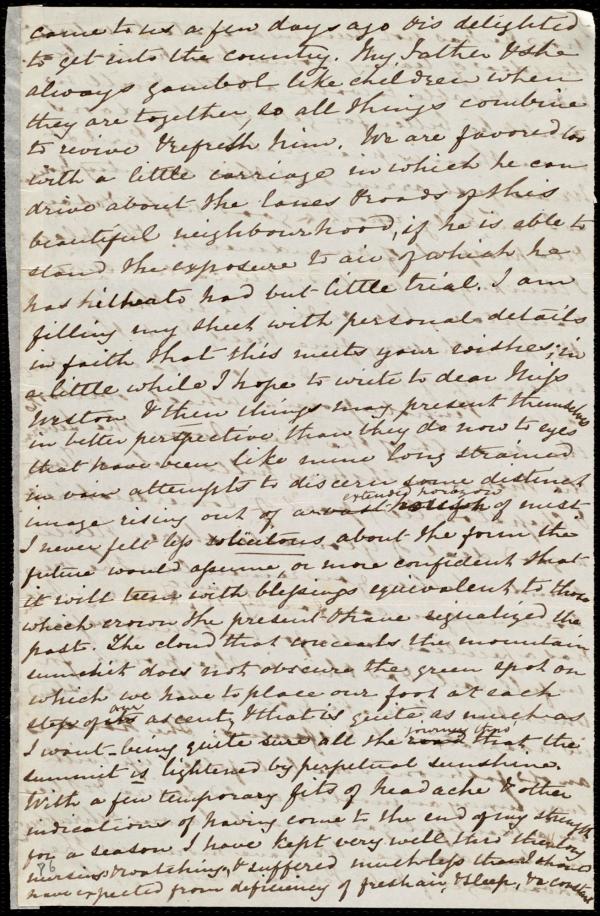 came to us a few days ago & is delighted
to get into the country. My Father & she
always gambol like children when
they are together, so all things combine
to revive & refresh him. We are favored too
with a little carriage in which he can
drive about the lanes & roads of this
beautiful neighbourhood, if he is able to
stand the exposure to air of which he
has hitherto had but little trial. I am
filling my sheet with personal details
in faith that this meets your wishes; in
a little while I hope to write to dear Miss
Weston & then things may present themselves
in better perspective than they do now to eyes
that have been like mine long strained
in vain attempts to discern some distinct
extended horizon
image rising out of a vast of mist
I never felt less solicitous about the form the
future would assume, or more confident that
it will teem with blessings equivalent to those
which crown the present & have signalized the
past. The cloud that conceals the mountain
summit does not obscure the green spot on
which we have to place our foot at each
step of its ascent, & that is quite as much as
journey thro
I want being quite sure all the road that the
summit is lightened by perpetual sunshine.
With a few temporary fits of headache & other
indications of having come to the end of my strength
for a season I have kept very well thro' the long
nursing & watching, & suffered much less than I should
have expected from deficiency of fresh air, & sleep, & constant
86